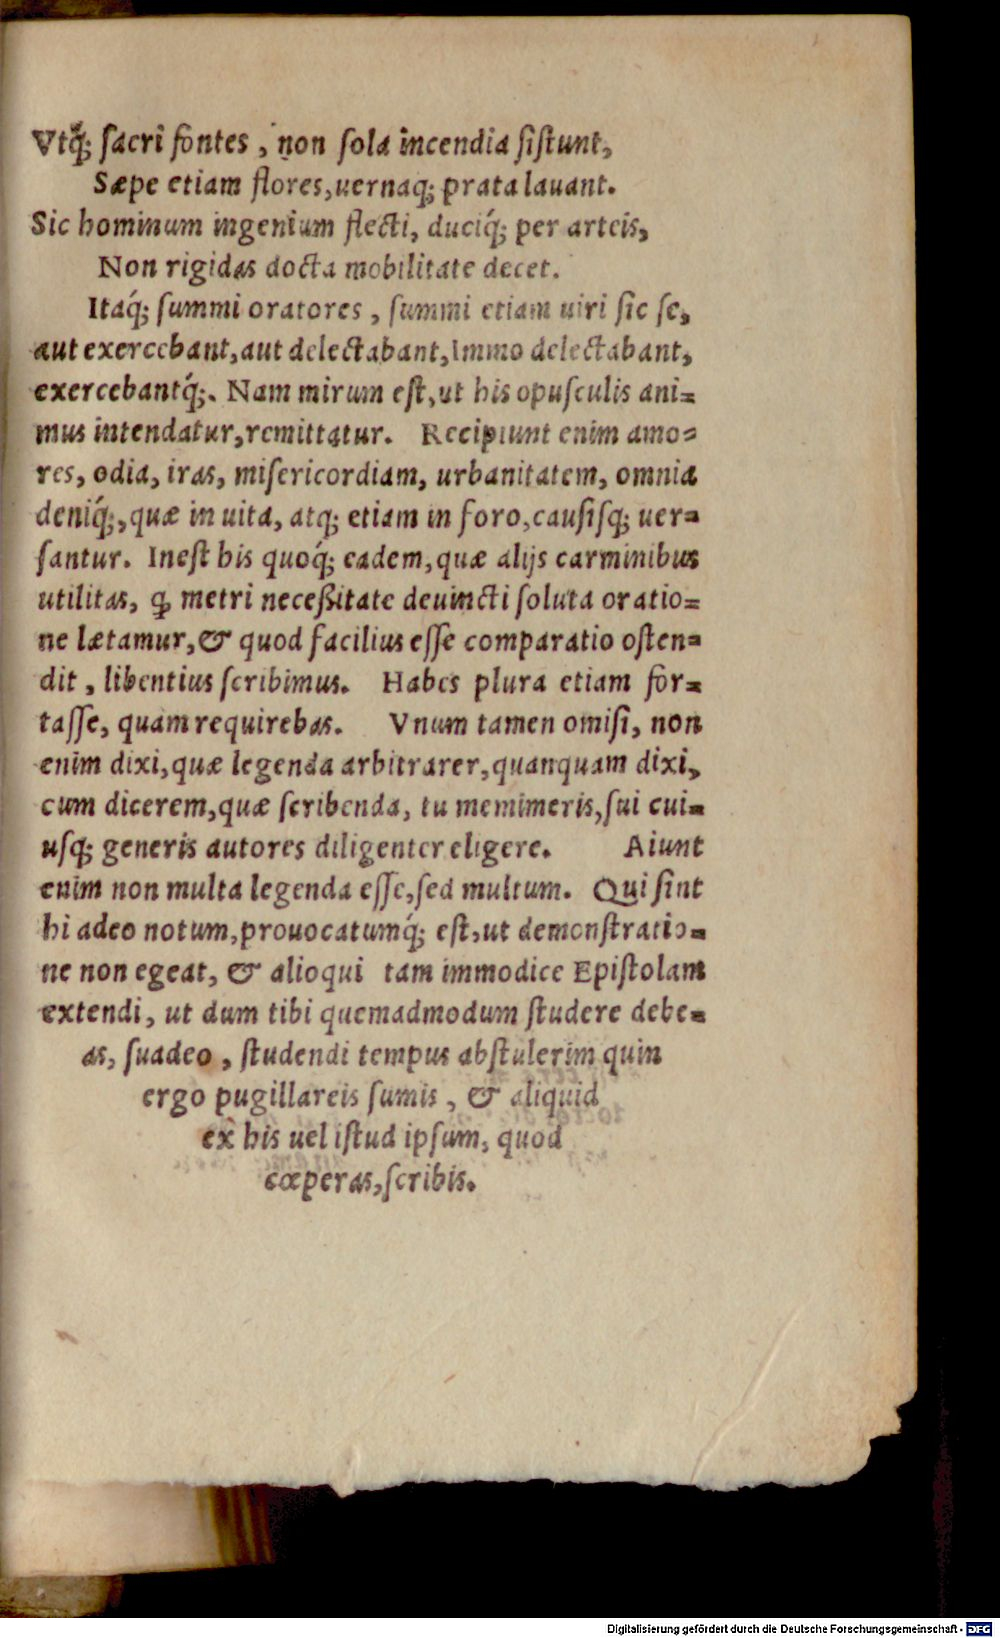 Vtq́; ſacri fontes, non ſola incendia ſiſtunt,
Sæpe etiam flores, uernaq; prata lauant.
Sic hominum ingenium flecti, duciq́; per arteis,
Non rigidas docta mobilitate decet.
Itaq́; ſummi oratores, ſummi etiam uiri ſic ſe,
aut exercebant, aut delectabant, Immo delectabant,
exercebantq́;. Nam mirum eſt, ut his opuſculis ani=
mus intendatur, remittatur. Recipiunt enim amo=
res, odia, iras, miſericordiam, urbanitatem, omnia
deniq́;, quæ in uita, atq; etiam in foro, cauſiſq; uer=
ſantur. Ineſt his quoq́; eadem, quæ alijs carminibus
utilitas, ꝙ metri neceßitate deuincti ſoluta oratio=
ne lætamur, & quod facilius eſſe comparatio oſten=
dit, libentius ſcribimus. Habes plura etiam for=
taſſe, quam requirebas. Vnum tamen omiſi, non
enim dixi, quæ legenda arbitrarer, quanquam dixi,
cum dicerem, quæ ſcribenda, tu memimeris, ſui cui=
uſq; generis autores diligenter eligere. Aiunt
enim non multa legenda eſſe, ſed multum. Qui ſint
hi adeo notum, prouocatumq́; eſt, ut demonſtratio=
ne non egeat, & alioqui tam immodice Epiſtolam
extendi, ut dum tibi quemadmodum ſtudere debe=
as, ſuadeo, ſtudendi tempus abſtulerim quin
ergo pugillareis ſumis, & aliquid
ex his uel iſtud ipſum, quod
cœperas, ſcribis.
Digitalisierung gefördert durch die Deutsche Forschungsgemeinschaft - DFG